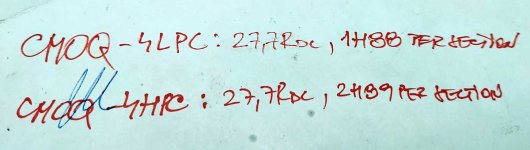 CMOQ-4LPC: 27,7RDC, 1H88 PER SECTION
CMOQ-4HPC: 27,7RDC, 2H89 PER SECTION